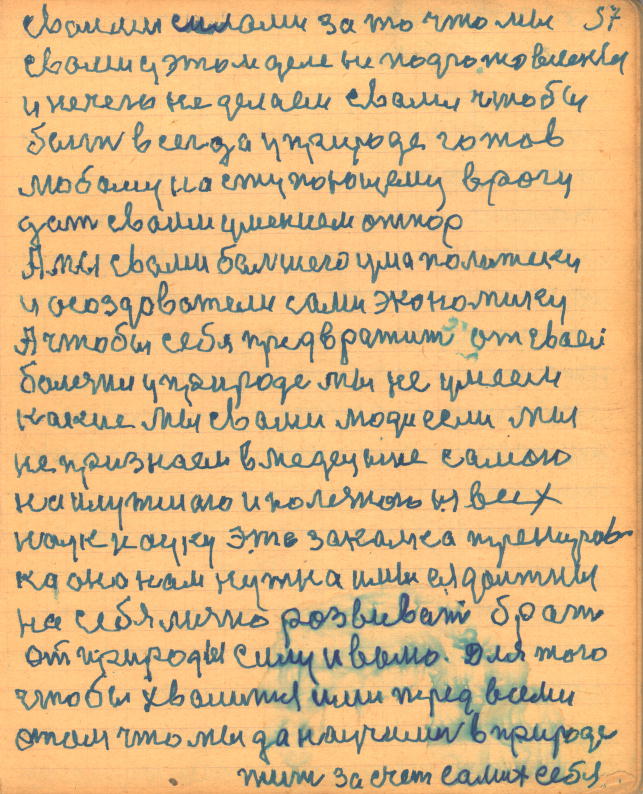 своими силами за то что мы 57
свами у этом деле не подготовлены
и нечего не делаем свами чтобы
быть всегда у природе готов
любому наступающему врагу
дат своим умением отпор
А мы свами балшего ума политику
и осоздователи сами экономику
А чтобы себя предвратит от своей
болезни у природе мы не умеем
какие мы свами люди если мы
не признаем в медецыне самою
наилутшию и полезною из всех
наук науку это закалка тренировка
ка она нам нужна и мы ея должны
на себя лично розвиват брат
от природы силу и волю. Для того
чтобы хвалится ими перед всеми
о том что мы да научим в природе
жит за счет самих себя